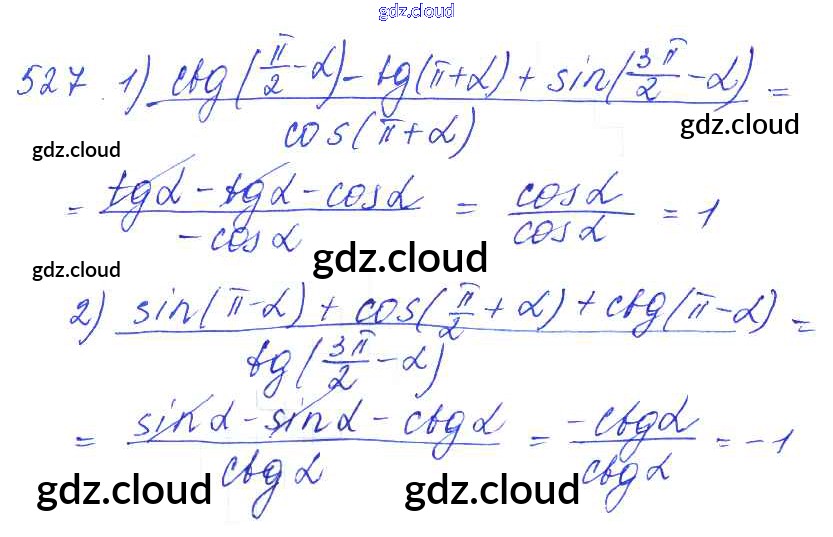 gdz.cloud
527. 1) (ctg(π/2 - α) - tg(π + α) + sin(3π/2 - α)) / cos(π + α) =
gdz.cloud gdz.cloud
= (tgα - tgα - cosα) / (-cosα) = cosα / cosα = 1
gdz.cloud gdz.cloud
2) (sin(π - α) + cos(π/2 + α) + ctg(π - α)) / tg(3π/2 - α) =
= (sinα - sinα - ctgα) / ctgα = -ctgα / ctgα = -1
gdz.cloud gdz.cloud gdz.cloud